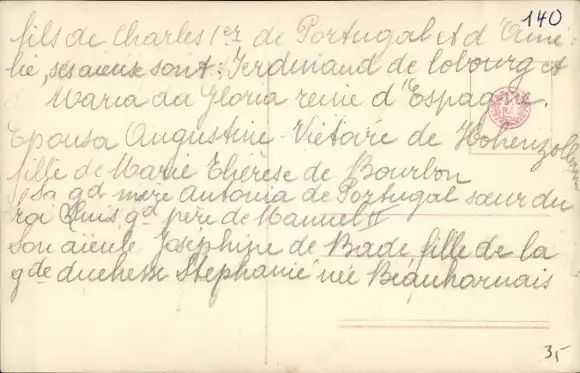 140
fils de Charles 1er de Portugal et d'Amé-
lie, ses aieux sont: Ferdinand de Cobourg et
Maria da Gloria reine d'Espagne.
Epousa Augustine-Victoire de Hohenzollern
fille de Marie Thérèse de Bourbon
sa gd mère Antonia de Portugal sœur du
roi Louis gd père de Manuel II
Son aieule Joséphine de Bade, fille de la
gde duchesse Stéphanie née Beauharnais
3,-